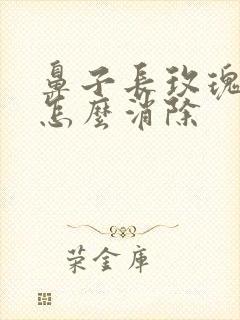 鼻子長玫瑰
怎麼消除
荣金庫